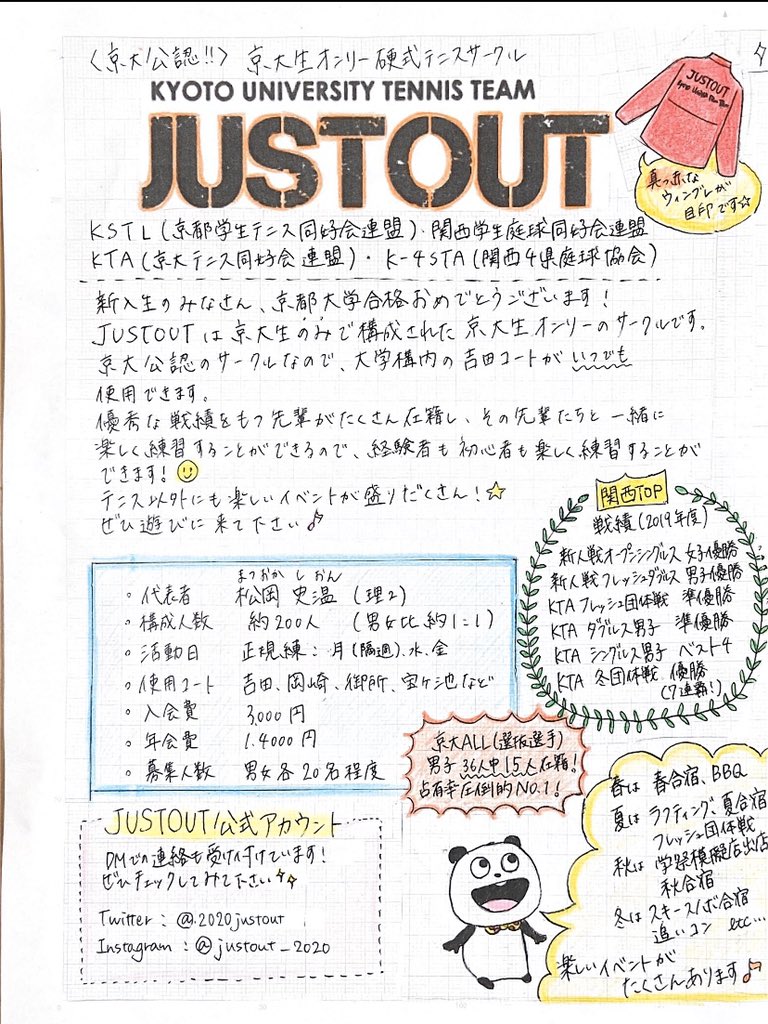 〈京大公認!!〉 京大生オンリー硬式テニスサークル
KYOTO UNIVERSITY TENNIS TEAM
JUSTOUT
JUSTOUT
真っ赤な
ウィンブレが
目印です☆
KSTL(京都学生テニス同好会連盟)・関西学生庭球同好会連盟
KTA(京大テニス同好会連盟)・K-4STA(関西4県庭球協会)
新入生のみなさん、京都大学合格おめでとうございます!
JUSTOUTは京大生のみで構成された京大生オンリーのサークルです。
京大公認のサークルなので、大学構内の吉田コートがいつでも
使用できます。
優秀な戦績をもつ先輩がたくさん在籍し、その先輩たちと一緒に
楽しく練習することができるので、経験者も初心者も楽しく練習することが
できます!
テニス以外にも楽しいイベントが盛りだくさん!☆
ぜひ遊びに来て下さい♪
関西TOP
戦績(2019年度)
新人戦オープンシングルス 女子優勝
新人戦フレッシュダブルス 男子優勝
KTA フレッシュ団体戦 準優勝
KTA ダブルス男子 準優勝
KTA シングルス男子 ベスト4
KTA 冬団体戦 優勝
(7連覇!)
まつおか しおん
。代表者 松岡 史温 (理2)
。構成人数 約200人 (男女比 約1:1)
。活動日 正規練:月(隔週)、水、金
。使用コート 吉田、岡崎、御所、宝ヶ池など
。入会費 3,000円
。年会費 1.4000円
。募集人数 男女各20名程度
京大ALL(選抜選手)
男子36人中15人在籍!
占有率圧倒的No.1!
JUSTOUT公式アカウント
DMでの連絡も受け付けています!
ぜひチェックしてみて下さい
Twitter : @2020justout
Instagram : @justout_2020
春は 春合宿、BBQ
夏は ラフティング、夏合宿
フレッシュ団体戦
秋は 学祭模擬店出店
秋合宿
冬は スキースノボ合宿
追いコン etc…
楽しいイベントが
たくさんあります♪